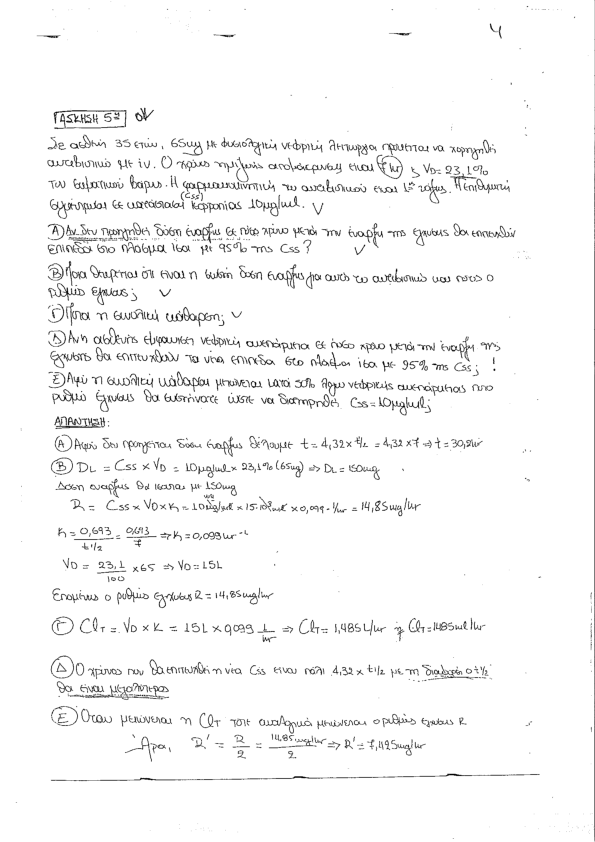 4
ΑΣΚΗΣΗ 5η οκ
Σε ασθενή 35 ετών, 65kg με φυσιολογική νεφρική λειτουργία πρόκειται να χορηγηθεί
αντιβιοτικό με iv. Ο χρόνος ημιζωής απομάκρυνσης είναι 7hr VD = 23,1%
του σωματικού βάρους. Η φαρμακοκινητική του αντιβιοτικού είναι 1ης τάξης. Η επιθυμητή
(Css)
συγκέντρωση σε κατάσταση ισορροπίας 10μg/ml.
Α) Αν δεν προηγηθεί δόση έναρξης σε πόσο χρόνο μετά την έναρξη της έγχυσης θα επιτευχθούν
επίπεδα στο πλάσμα ίσα με 95% της Css?
Β) Ποια θεωρείται ότι είναι η σωστή δόση έναρξης για αυτό το αντιβιοτικό και ποιος ο
ρυθμός έγχυσης;
Γ) Ποια η συνολική κάθαρση;
Δ) Αν η ασθενής εμφανίσει νεφρική ανεπάρκεια σε πόσο χρόνο μετά την έναρξη της
έγχυσης θα επιτευχθούν τα νέα επίπεδα στο πλάσμα ίσα με 95% της Css; !
Ε) Αφού η συνολική κάθαρση μειώνεται κατά 50% λόγω νεφρικής ανεπάρκειας ποιο
ρυθμό έγχυσης θα συστήνατε ώστε να διατηρηθεί Css = 10μg/ml;
ΑΠΑΝΤΗΣΗ:
Α Αφού δεν προηγείται δόση έναρξης θέλουμε t = 4,32 x t1/2 = 4,32 x 7 ⇒ t = 30,2hr
Β DL = Css x VD = 10μg/ml x 23,1% (65kg) ⇒ DL = 150mg
Δόση έναρξης θα είναι με 150mg
R = Css x VD x K = 10μg/ml x 15·10³ml x 0,099·1/hr = 14,85mg/hr
K = 0,693/t1/2 = 0,693/7 ⇒ K = 0,099hr⁻¹
VD = 23,1/100 x 65 ⇒ VD = 15L
Επομένως ο ρυθμός έγχυσης R = 14,85mg/hr
Γ ClT = VD x K = 15L x 0,099 1/hr ⇒ ClT = 1,485L/hr ή ClT = 1485ml/hr
Δ Ο χρόνος που θα επιτευχθεί η νέα Css είναι πάλι 4,32 x t1/2 με τη διαφορά ο t1/2
θα είναι μεγαλύτερος
Ε Όταν μειώνεται η ClT τότε αναλογικά μειώνεται ο ρυθμός έγχυσης R
Άρα, R' = R/2 = 14,85mg/hr/2 ⇒ R' = 7,425mg/hr